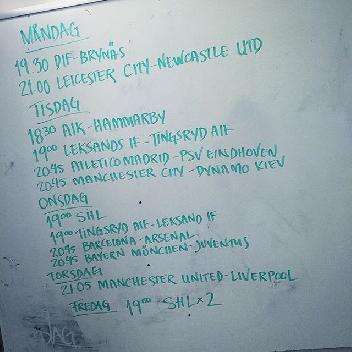 MÅNDAG
19.30 DIF-BRYNÄS
21.00 LEICESTER CITY-NEWCASTLE UTD
TISDAG
18.30 AIK-HAMMARBY
19.00 LEKSANDS IF-TINGSRYD AIF
20.45 ATLETICO MADRID-PSV EINDHOVEN
20.45 MANCHESTER CITY-DYNAMO KIEV
ONSDAG
19.00 SHL
19.00 TINGSRYD AIF-LEKSAND IF
20.45 BARCELONA-ARSENAL
20.45 BAYERN MÜNCHEN-JUVENTUS
TORSDAG
21.05 MANCHESTER UNITED-LIVERPOOL
FREDAG 19.00 SHL x 2